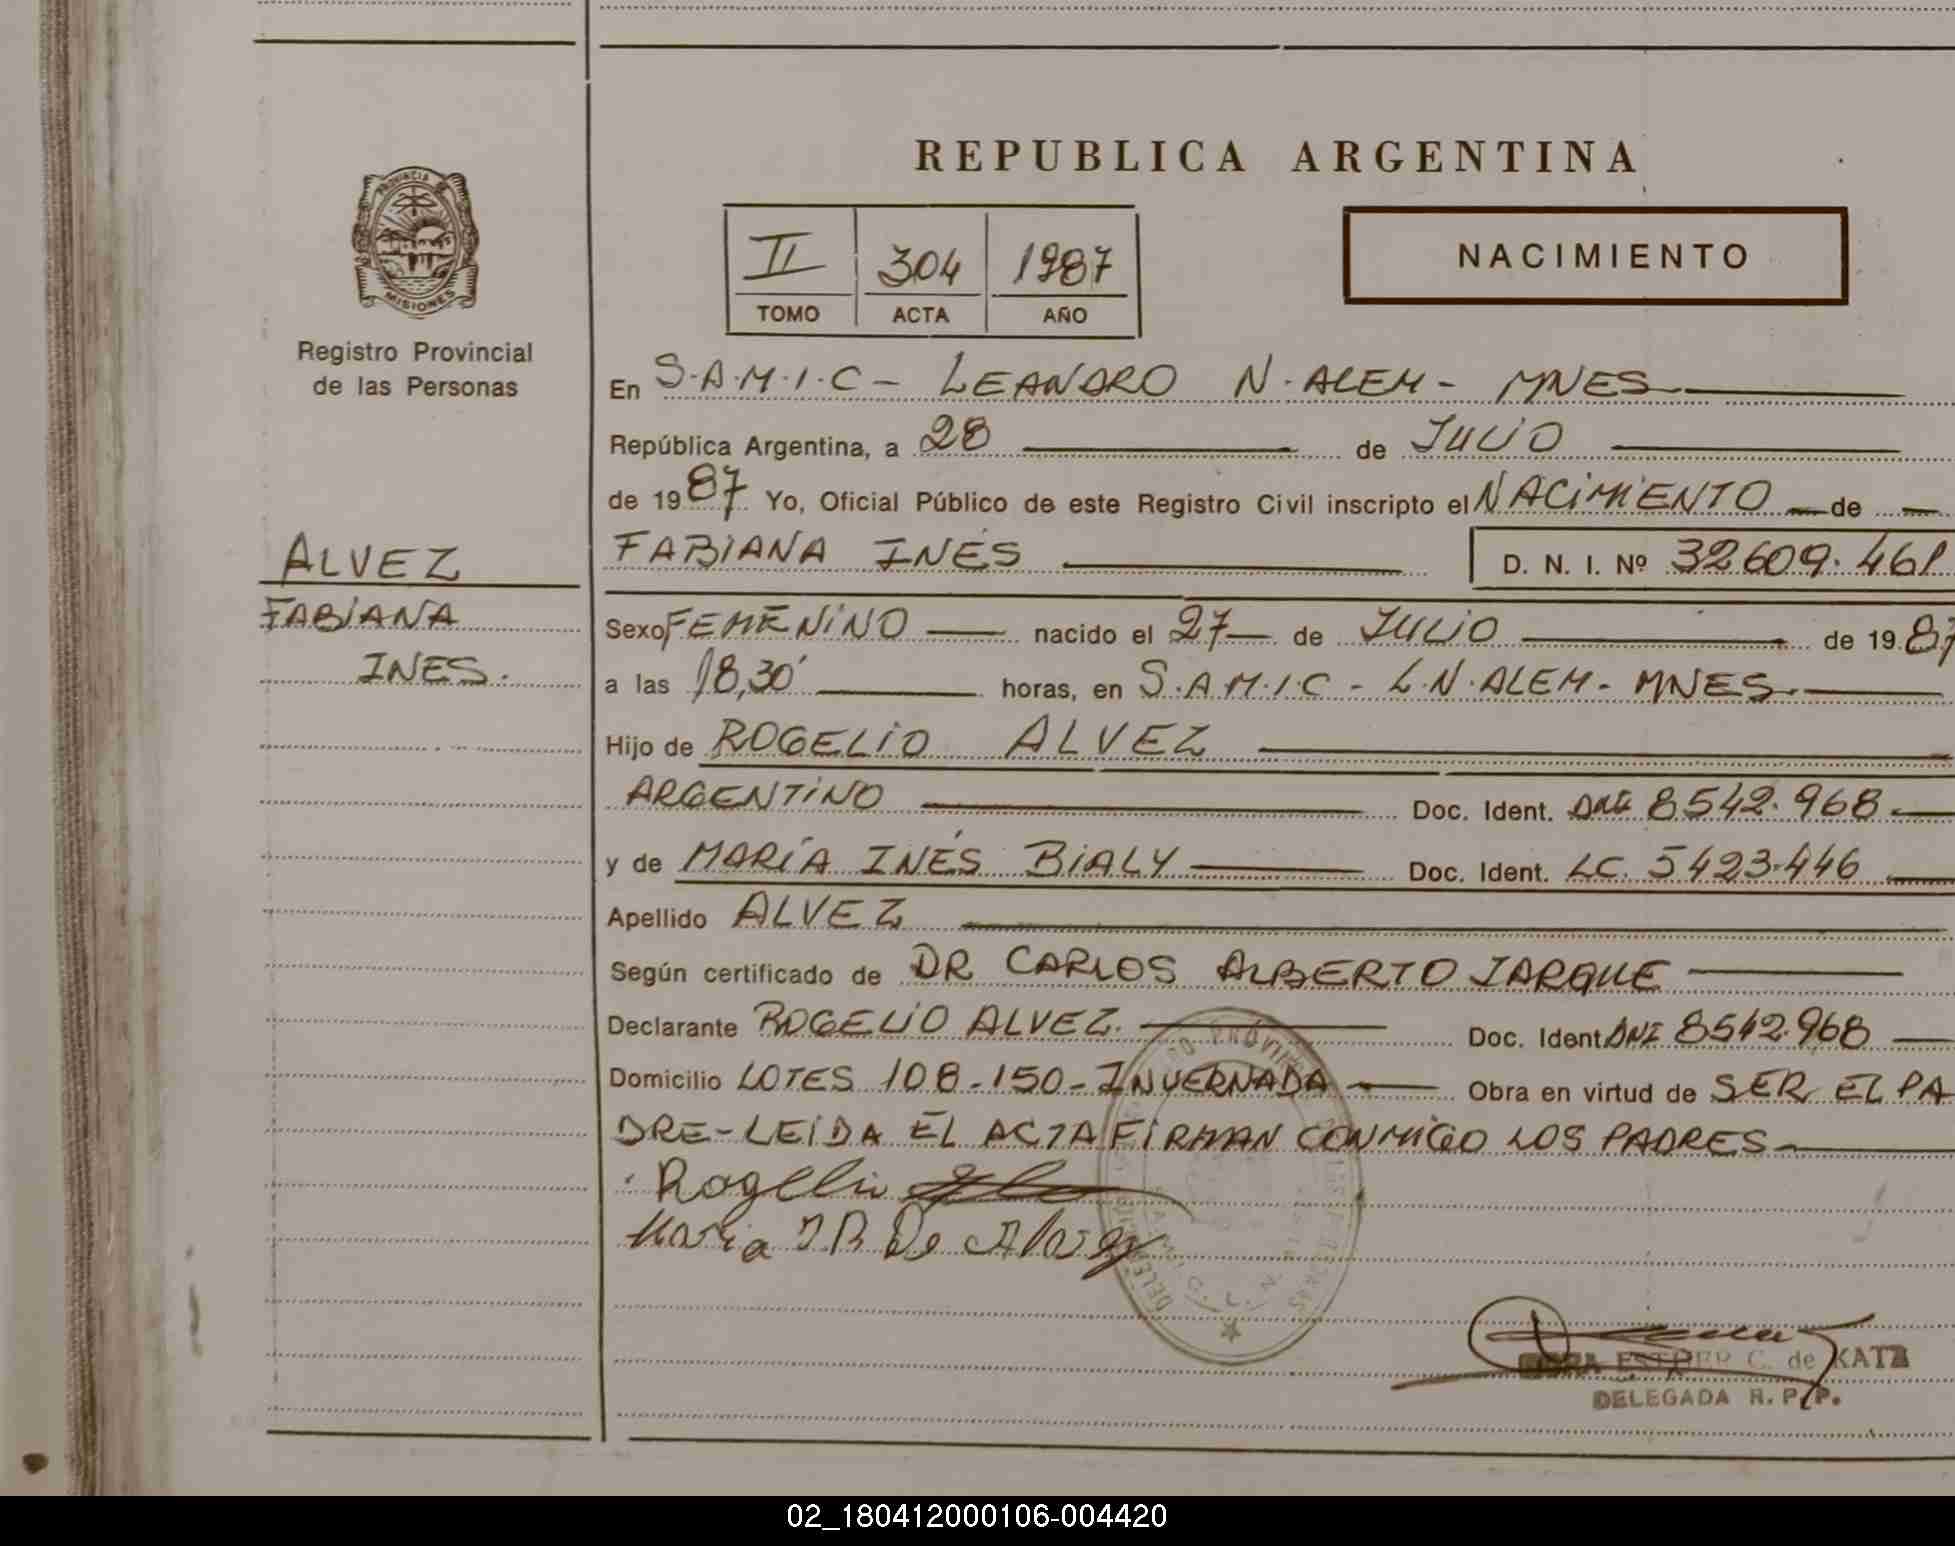 REPUBLICA ARGENTINA
PROVINCIA DE
MISIONES
Registro Provincial
de las Personas
II 304 1987
TOMO ACTA AÑO
NACIMIENTO
En S.A.M.I.C - LEANDRO N. ALEM - MNES
República Argentina, a 28 de JULIO
de 1987 Yo, Oficial Público de este Registro Civil inscripto el NACIMIENTO de
ALVEZ
FABIANA
INES.
FABIANA INÉS D. N. I. Nº 32609.461
Sexo FEMENINO nacido el 27 de JULIO de 1987
a las 18,30' horas, en S.A.M.I.C - L.N.ALEM - MNES
Hijo de ROGELIO ALVEZ
ARGENTINO Doc. Ident. DNI 8542.968
y de MARÍA INÉS BIALY Doc. Ident. LC. 5423.446
Apellido ALVEZ
Según certificado de DR CARLOS ALBERTO JARQUE
Declarante ROGELIO ALVEZ. Doc. Ident DNI 8542.968
Domicilio LOTES 108-150-INVERNADA Obra en virtud de SER EL PA
DRE-LEIDA EL ACTA FIRMAN CONMIGO LOS PADRES
Rogelio
Maria I B De Alvez
ESTHER C. de KATZ
DELEGADA R. P. P.
02_180412000106-004420